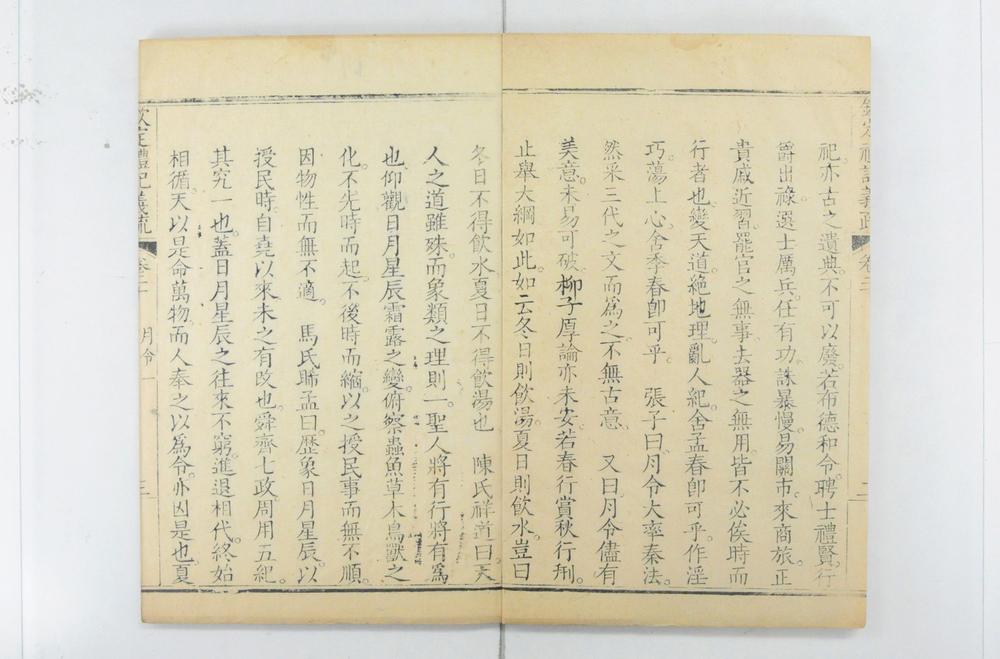 祀亦古之遺典不可以廢若布德和令聘士禮賢行
爵出祿選士厲兵任有功誅暴慢易關市來商旅正
貴戚近習罷官之無事去器之無用皆不必俟時而
行者也變天道絶地理亂人紀舍孟春卽可乎作淫
巧蕩上心舍季春卽可乎 張子曰月令大率秦法
然采三代之文而爲之不無古意 又曰月令儘有
美意未易可破柳子厚論亦未安若春行賞秋行刑
止舉大綱如此如云冬日則飲湯夏日則飲水豈曰
冬日不得飲水夏日不得飲湯也 陳氏祥道曰天
人之道雖殊而象類之理則一聖人將有行將有爲
也仰觀日月星辰霜露之變俯察蟲魚草木鳥獸之
化不先時而起不後時而縮以之授民事而無不順
因物性而無不適 馬氏晞孟曰歷象日月星辰以
授民時自堯以來未之有改也舜齊七政周用五紀
其究一也蓋日月星辰之往來不窮進退相代終始
相循天以是命萬物而人奉之以爲令亦因是也夏
欽定禮記義疏 卷二十 月令一 三